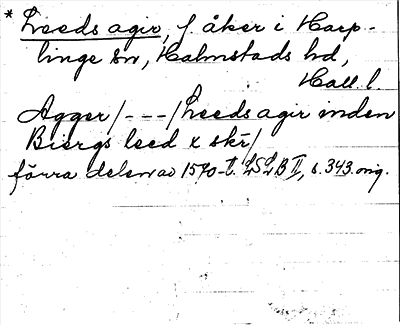 * Leeds agir, f. åker i Harp-
linge sn, Halmstads hd,
Hall. l.
Agger / - - - / Leeds agir inden
Biergs leed x skr /
förra delen av 1590-t. LSLB II, s. 343. orig.